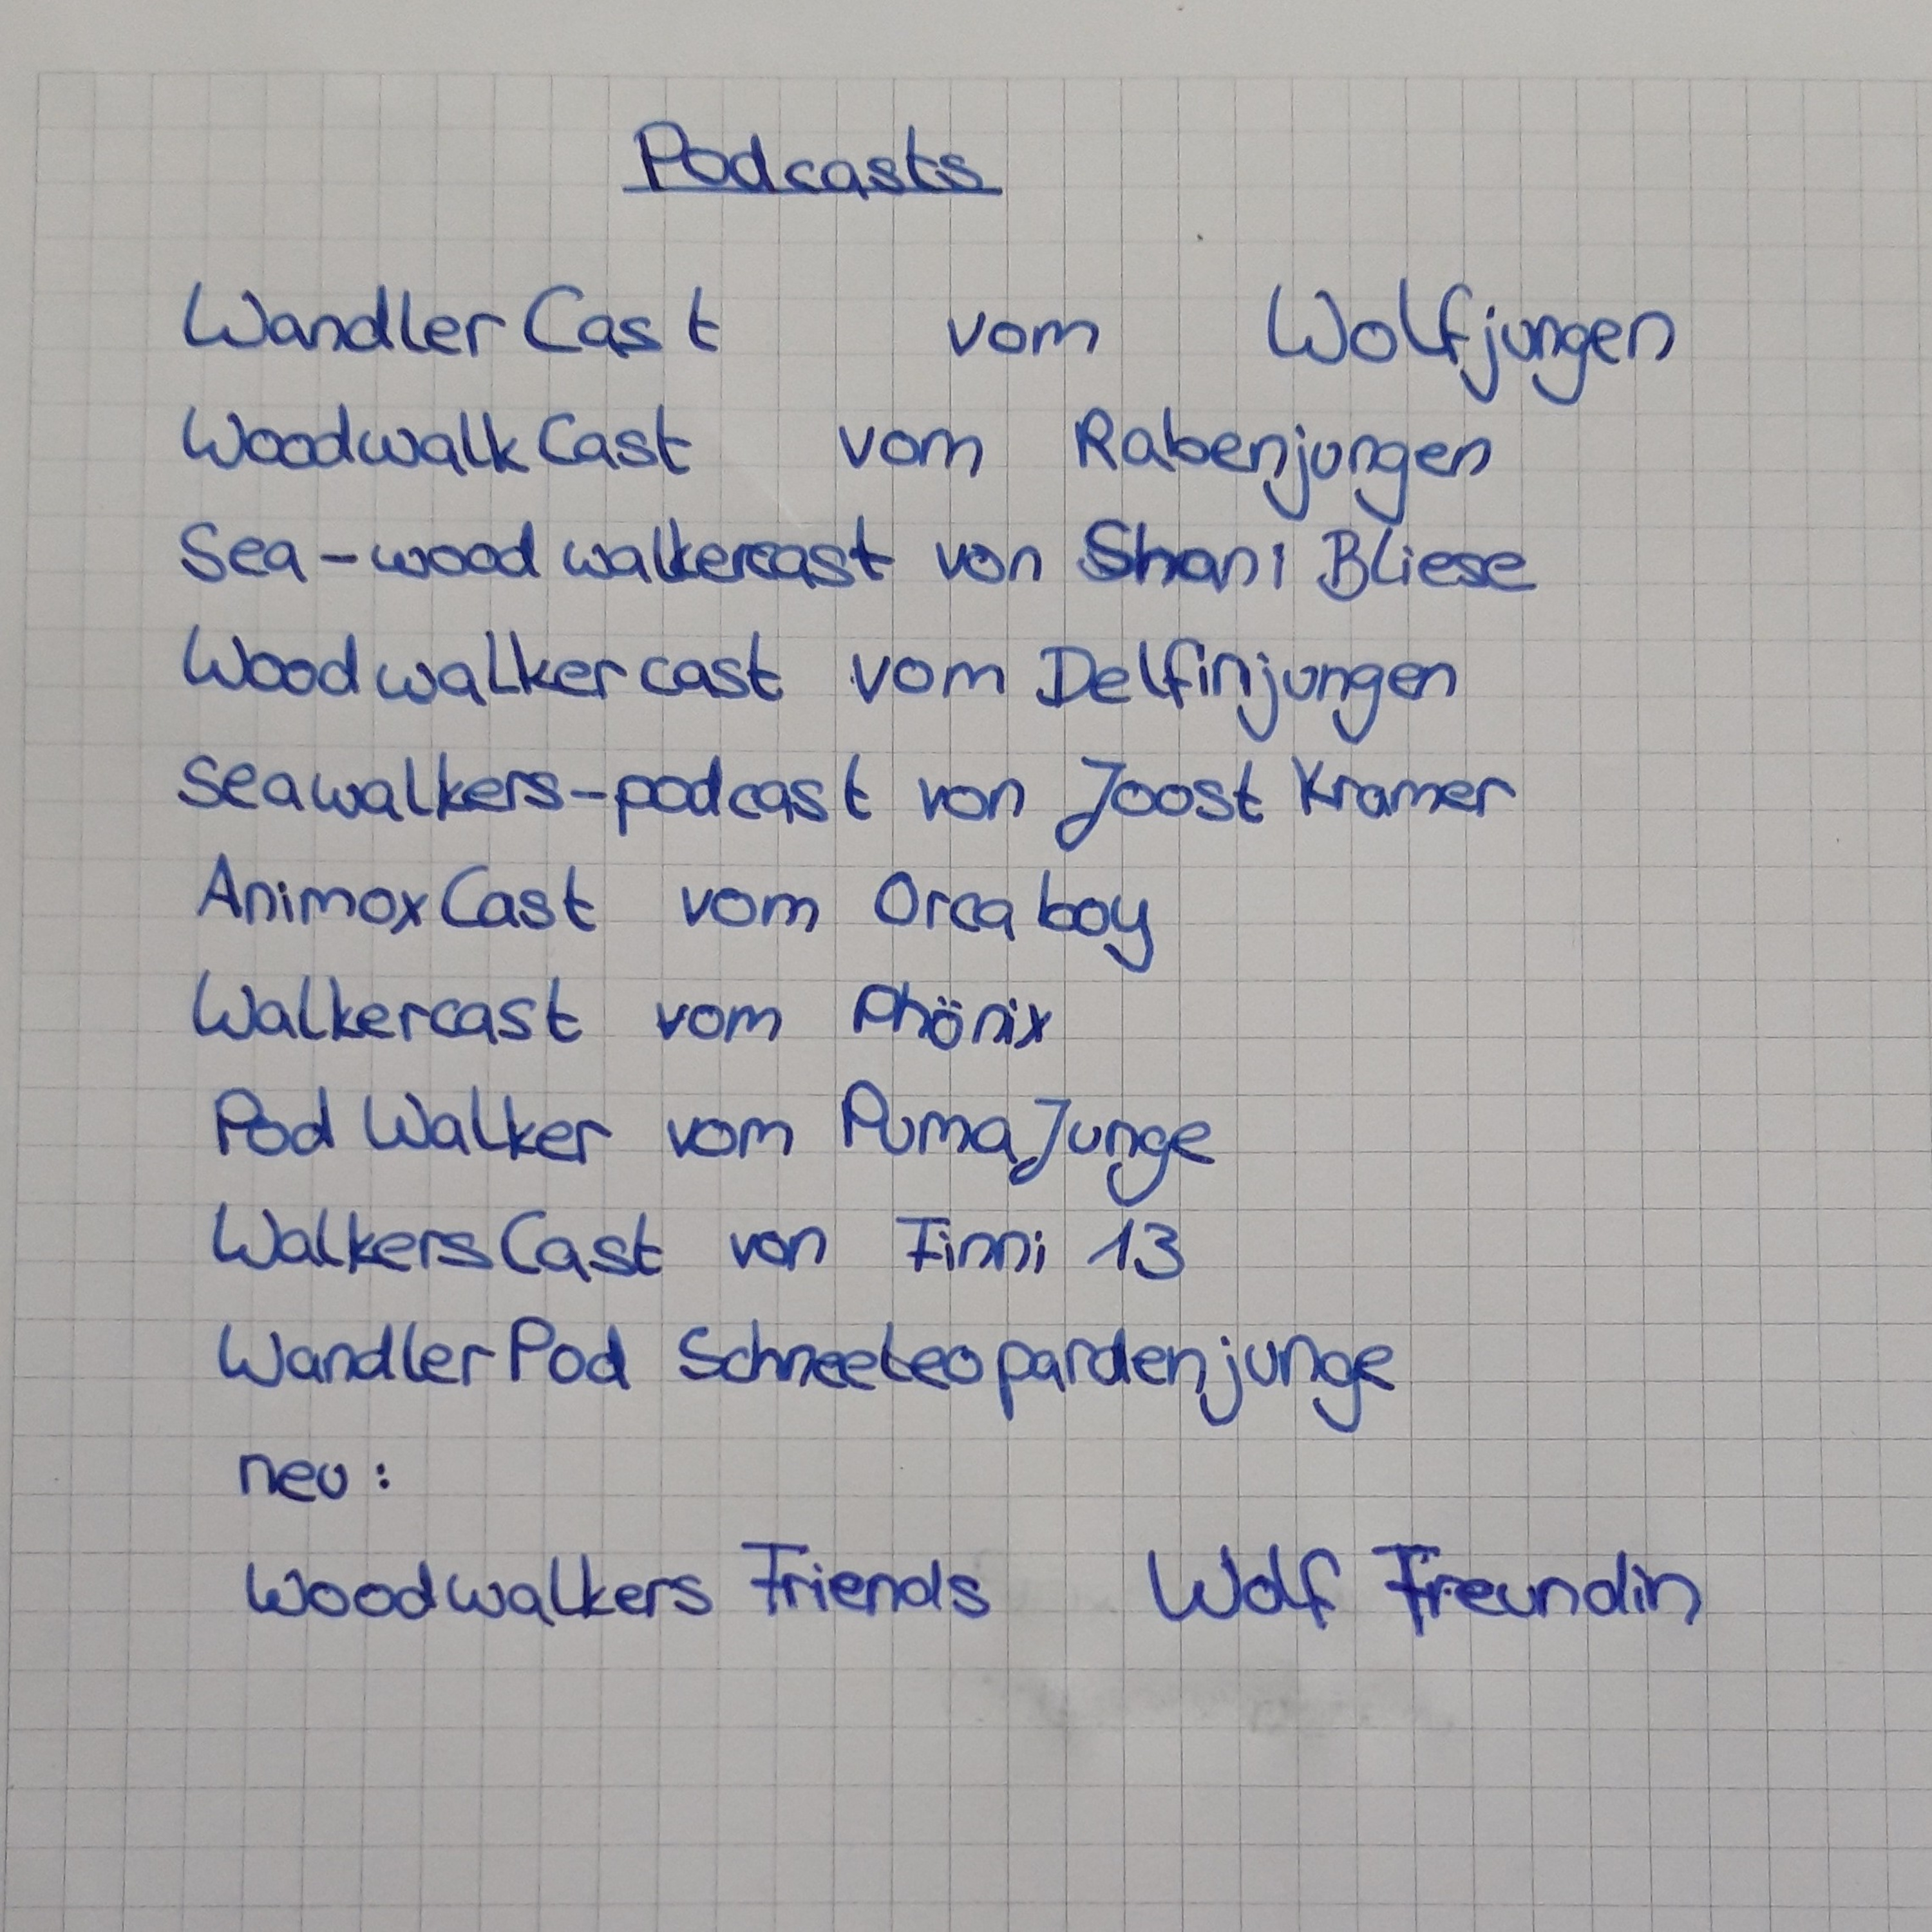 Podcasts
WandlerCast vom Wolfjungen
WoodwalkCast vom Rabenjungen
Sea-woodwalkercast von Shani Bliese
Woodwalkercast vom Delfinjungen
Seawalkers-podcast von Joost Kramer
AnimoxCast vom Orcaboy
Walkercast vom Phönix
PodWalker vom PumaJunge
WalkersCast von Finni 13
WandlerPod Schneeleopardenjunge
neu:
Woodwalkers Friends Wolf Freundin